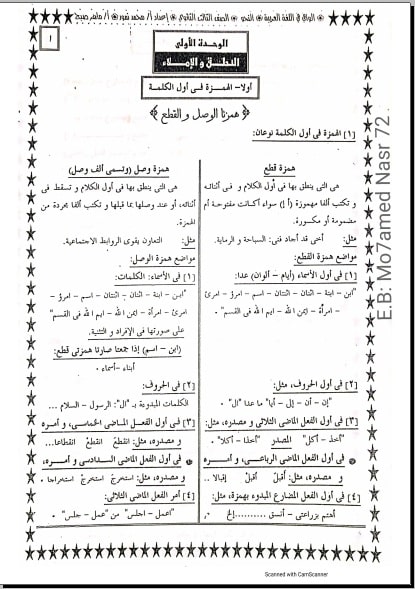 ❋ الوافى فى اللغة العربية ❋ النحو ❋ الصف الثالث الثانوى ❋ إعداد أ/ محمد
١
الوحدة الأولى
النطق و الإملاء
أولا – الهمزة فى أول الكلمة
همزتا الوصل و القطع
[١] الهمزة فى أول الكلمة نوعان:
همزة قطع
هى التى ينطق بها فى أول الكلام و فى أثنائه
و تكتب ألفا مهموزة (أ إ) سواء أكانت مفتوحة أم
مضمومة أو مكسورة.
مثل: أخى قد أجاد فنى: السباحة و الرماية.
مواضع همزة القطع:
[١] فى أول الأسماء (أيام – ألوان) عدا:
"ابن – ابنة – اثنان – اثنتان – اسم – امرؤ – امرئ
– امرأة – (ايمن الله – ايم الله فى القسم" ٠
[٢] فى أول الحروف، مثل:
"إن – أن – إلى – أيا" ما عدا "ال" ٠
[٣] فى أول الفعل الماضى الثلاثى و مصدره، مثل:
"أخذ – أكل" المصدر "أخذا – أكلا" ٠
فى أول الفعل الماضى الرباعى، و أمره
و مصدره، مثل: أقبلَ أقبلْ إقبالا ..
[٤] فى أول الفعل المضارع المبدوء بهمزة، مثل:
أهتم بزراعتى – أنسق ..........إلخ ٠
همزة وصل (وتسمى ألف وصل)
هى التى ينطق بها فى أول الكلام و تسقط فى
أثنائه، أو عند وصلها بما قبلها و تكتب ألفا مجردة من
الهمزة.
مثل: التعاون يقوى الروابط الاجتماعية.
مواضع همزة الوصل:
[١] فى الأسماء: الكلمات:
"ابن – ابنة – اثنان – اثنتان – اسم – امرؤ –
امرئ – امرأة – (ايمن الله – ايم الله فى القسم"
على صورتها فى الإفراد و التثنية.
(ابن – اسم) إذا جمعتا صارتا همزتى قطع:
أبناء –أسماء ٠
[٢] فى الحروف:
الكلمات المبدوءة بـ "ال": الرسول – السلام ...
[٣] فى أول الفعل الماضى الخماسى، و أمره
و مصدره، مثل: انقطعَ انقطعْ انقطاعا...
فى أول الفعل الماضى السداسى و أمره،
و مصدره، مثل: استخرجَ استخرجْ استخراجا ٠
[٤] أمر الفعل الماضى الثلاثى:
"اعمل – اجلس" من "عمل – جلس" ٠
E.B: Mo7amed Nasr 72
Scanned with CamScanner